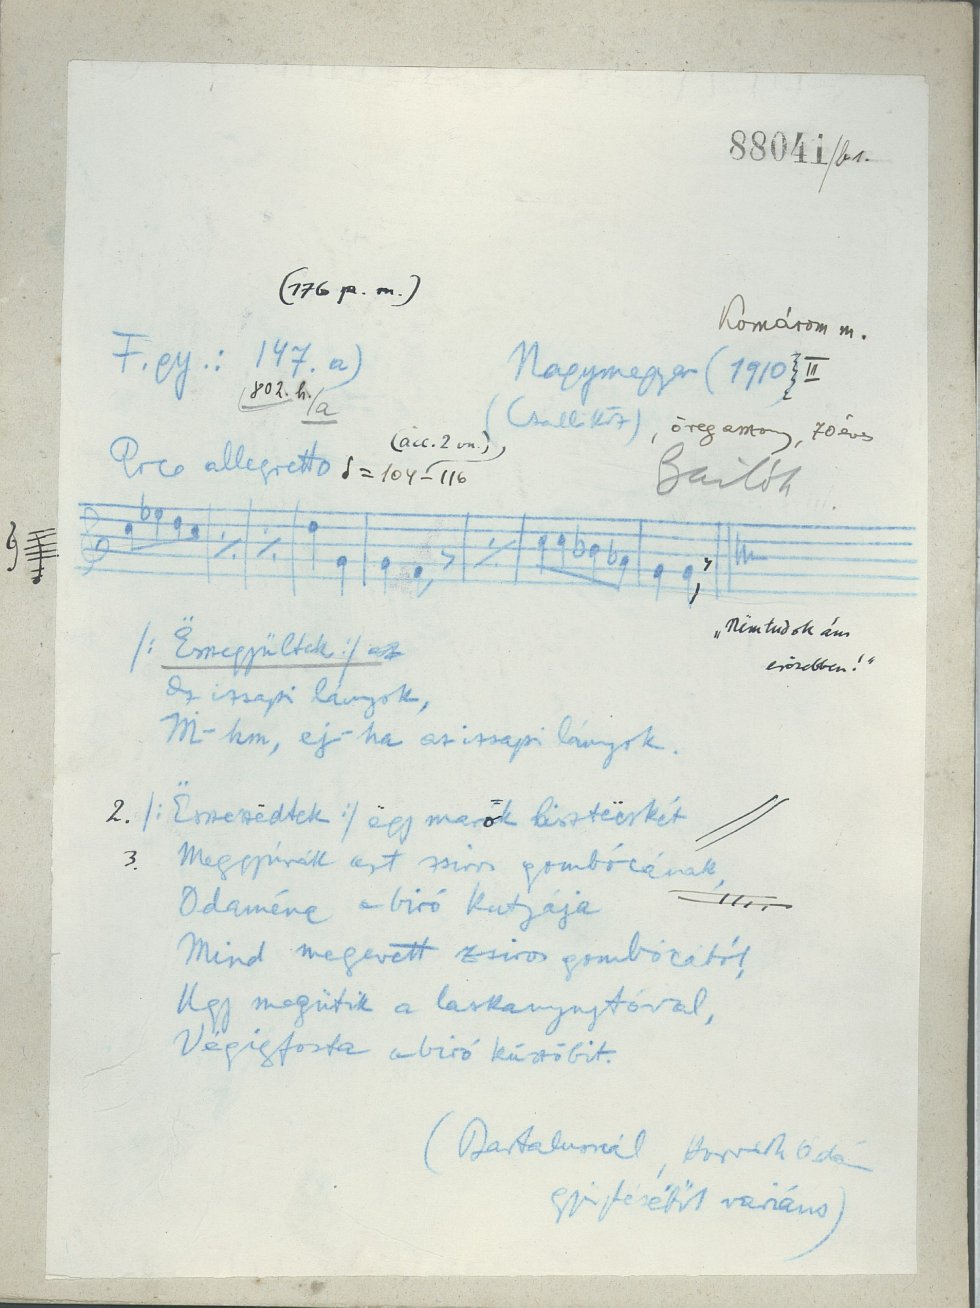 88041/b1.
(176 p. m.)
Komárom m.
F. gy.: 147. a)
Nagymegyer (1910) II
802. h. /a
(Csallóköz), öregasszony, 70 éves
Poco allegretto ♩ = 104–116
Bartók
"Nëmtudok ám
erősebben!"
/: Összegyültek :/ az
Az izsapi lányok,
M-hm, ej-ha az izsapi lányok.
2. /: Összeszëdtek :/ ëgy marok lisztëcskét
3. Meggyúrák azt zsiros gombócának,
Odaméne a biró kutyája
Mind megevett zsiros gombócából,
Ugy megütik a laskanyujtóval,
Végigfosta a biró küszöbit.
(Bartalusnál, Horváth Ádám
gyüjtéséböl variáns)